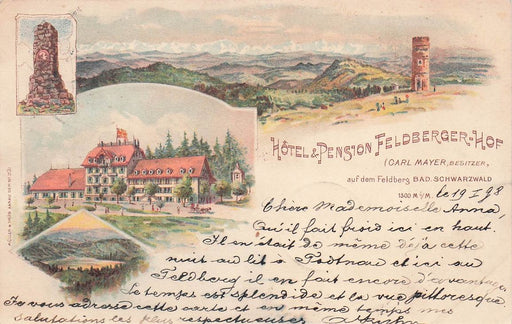 HÔTEL & PENSION FELDBERGER-HOF
(CARL MAYER, BESITZER,
auf dem Feldberg BAD. SCHWARZWALD
1300 M/M.
le 19 I 98
Chère Mademoiselle Anna,
Qu'il fait froid ici en haut.
Il en était de même déjà cette
nuit au lit à et ici au
Feldberg il en fait encore d'avantage
Le temps est splendide et la vue pittoresque
Je vous adresse cette carte et en même temps mes
salutations les plus respectueuses